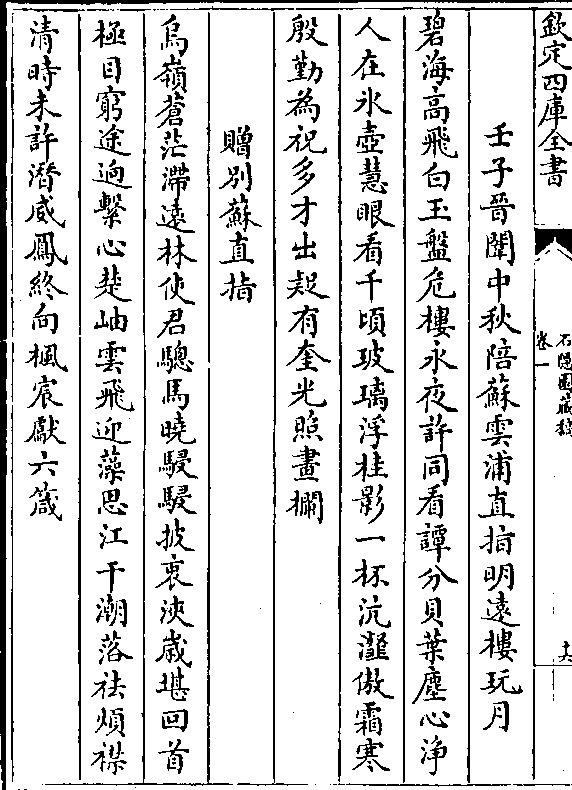 欽定四庫全書
石隱園藏稿
卷一
十六
壬子晉闈中秋陪蘇雲浦直指明遠樓玩月
碧海高飛白玉盤危樓永夜許同看譚分貝葉塵心淨
人在氷壺慧眼看千頃玻璃浮桂影一杯沆瀣傲霜寒
殷勤為祝多才出起有奎光照畫欄
贈別蘇直指
烏嶺蒼茫滯遠林使君驄馬曉駸駸披衷浹歲堪回首
極目窮途逈繫心楚岫雲飛迎藻思江干潮落袪煩襟
清時未許潛威鳳終向楓宸獻六箴